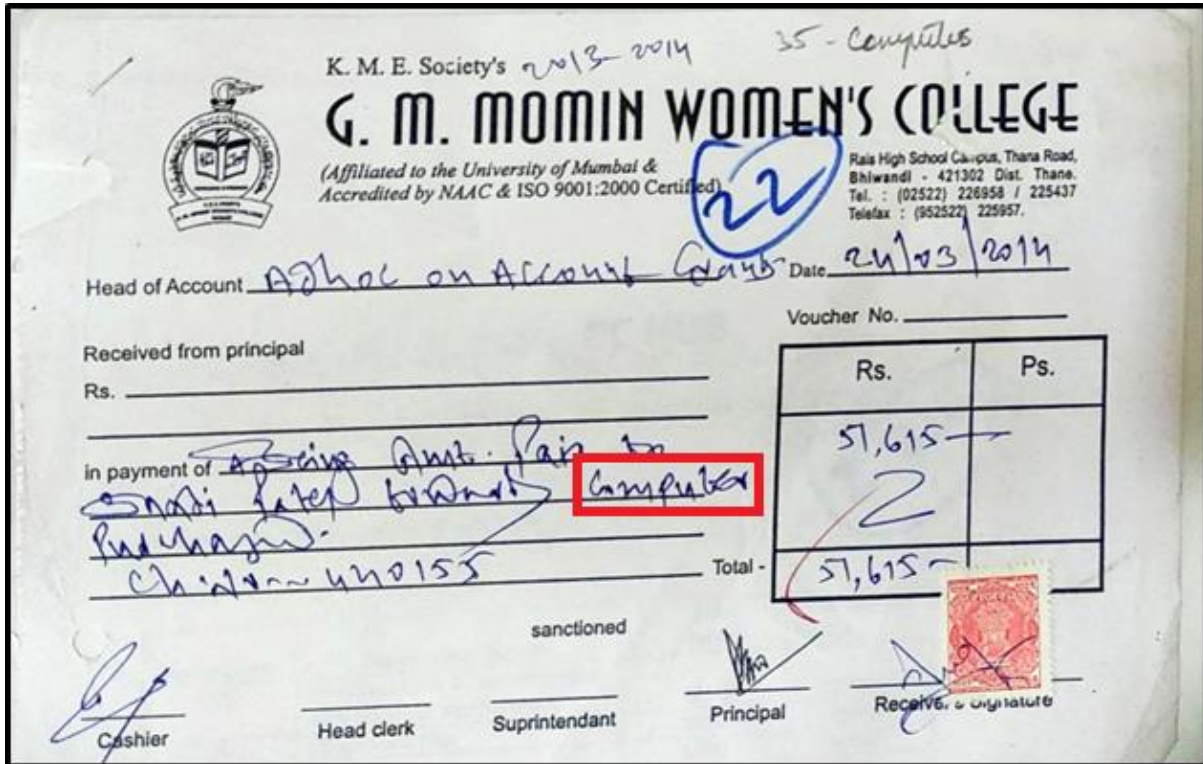 35 - Computers
K. M. E. Society's 2013-2014
G. M. MOMIN WOMEN'S COLLEGE
(Affiliated to the University of Mumbai &
Accredited by NAAC & ISO 9001:2000 Certified)
22
Rais High School Campus, Thana Road,
Bhiwandi - 421302 Dist. Thane.
Tel. : (02522) 226958 / 225437
Telefax : (952522) 225957.
Head of Account Adhoc on Account Grant Date 24/03/2014
Voucher No.
Received from principal
Rs.
Rs. Ps.
in payment of Being Amt. Paid to
Patel towards Computer
Purchased.
440155
51,615
Total - 51,615
sanctioned
Cashier
Head clerk
Suprintendant
Principal
Receiver's Signature